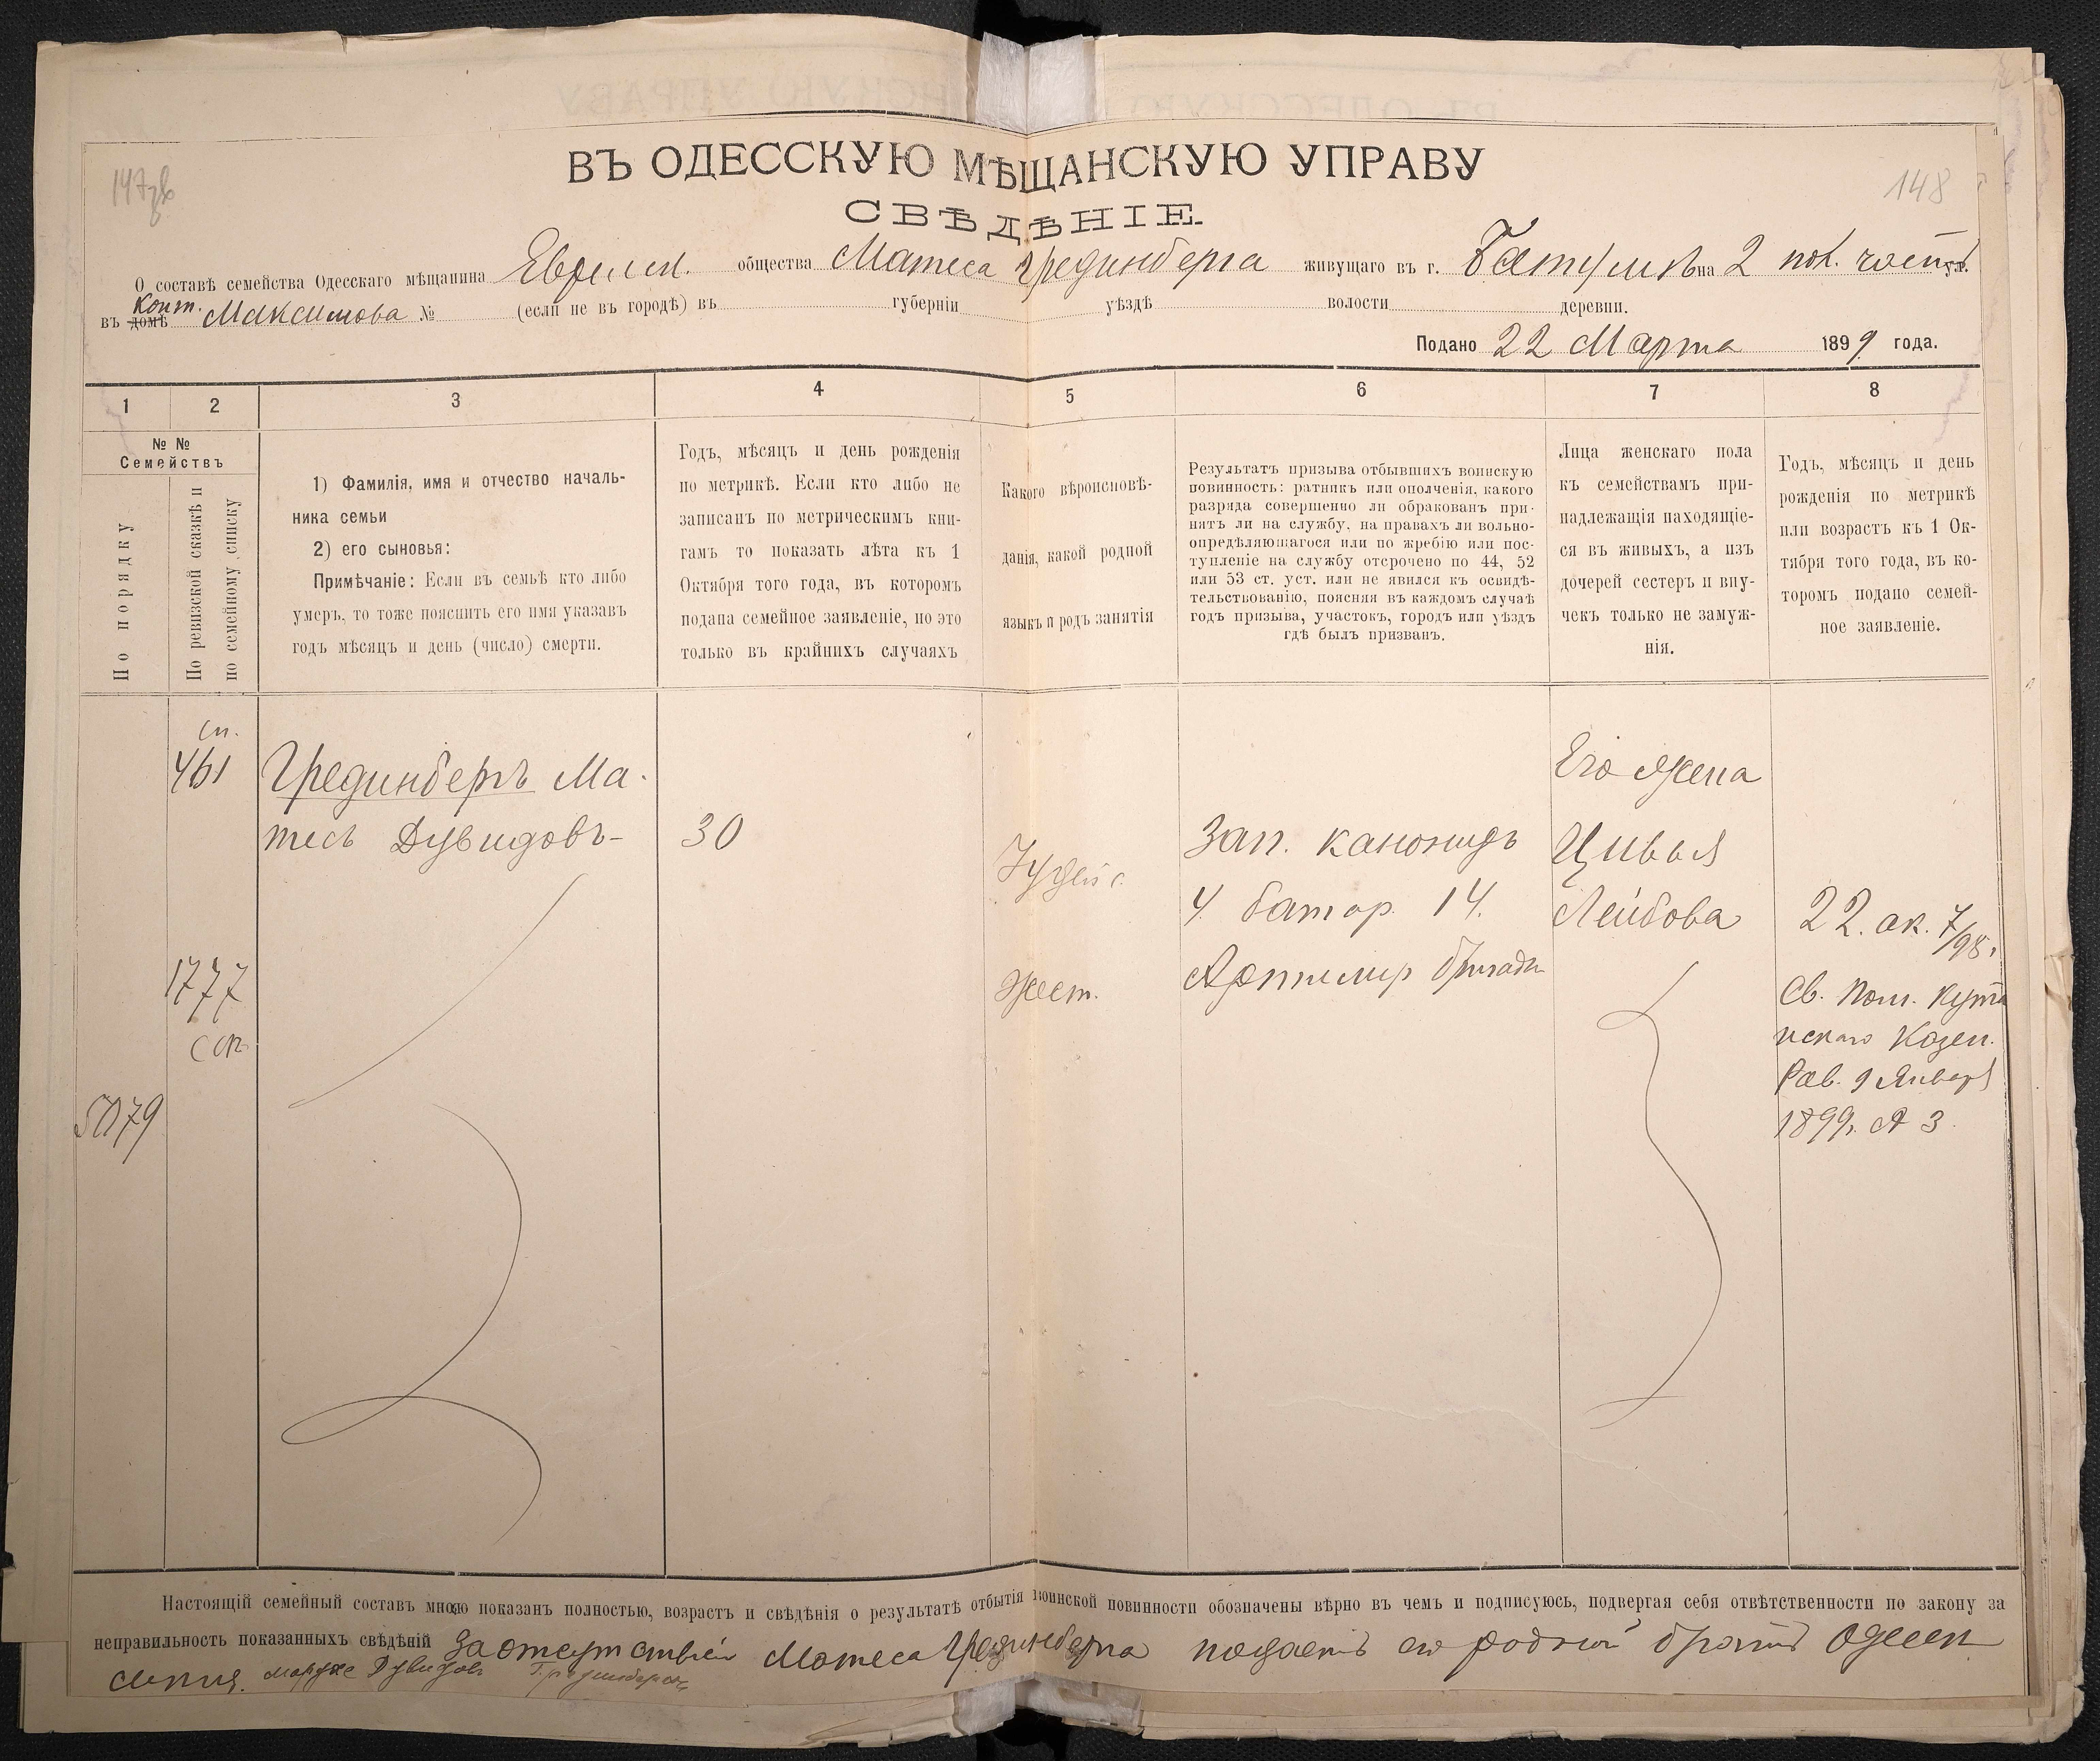 147зв
148
ВЪ ОДЕССКУЮ МѢЩАНСКУЮ УПРАВУ
СВѢДѢНІЕ.
О составѣ семейства Одесскаго мѣщанина Еврейск. общества Матеса Грединберга живущаго въ г. Батумѣ на 2 пол. части ул.
въ домѣ конт. Максимова № (если не въ городѣ) въ губерніи уѣздѣ волости деревни.
Подано 22 Марта 1899 года.
1 2 3 4 5 6 7 8
№ №
Семействъ
По порядку
По ревизской сказкѣ и
по семейному списку
1) Фамилія, имя и отчество началь-
ника семьи
2) его сыновья:
Примѣчаніе: Если въ семьѣ кто либо
умеръ, то тоже пояснить его имя указавъ
годъ мѣсяцъ и день (число) смерти.
Годъ, мѣсяцъ и день рожденія
по метрикѣ. Если кто либо не
записанъ по метрическимъ кни-
гамъ то показать лѣта къ 1
Октября того года, въ которомъ
подана семейное заявленіе, но это
только въ крайнихъ случаяхъ
Какого вѣроисповѣ-
данія, какой родной
языкъ и родъ занятія
Результатъ призыва отбывшихъ воинскую
повинность: ратникъ или ополченія, какого
разряда совершенно ли обракованъ при-
нятъ ли на службу, на правахъ ли вольно-
опредѣляющагося или по жребію или пос-
тупленіе на службу отсрочено по 44, 52
или 53 ст. уст. или не явился къ освидѣ-
тельствованію, поясняя въ каждомъ случаѣ
годъ призыва, участокъ, городъ или уѣздъ
гдѣ былъ призванъ.
Лица женскаго пола
къ семействамъ при-
надлежащія находящіе-
ся въ живыхъ, а изъ
дочерей сестеръ и вну-
чекъ только не замуж-
нія.
Годъ, мѣсяцъ и день
рожденія по метрикѣ
или возрастъ къ 1 Ок-
тября того года, въ ко-
торомъ подано семей-
ное заявленіе.
сп.
461
1777
сп
5079
Грединбергъ Ма-
тесъ Дувидовъ-
30
Іудейс.
Жест.
Зап. канониръ
4. батар. 14.
Артилер бригады
Его жена
Цивья
Лейбова
22. ак. 7/98.
Св. Пом. Кута
искаго Казен.
Рав. 9 Января
1899г. № 3
Настоящій семейный составъ мною показанъ полностью, возрастъ и свѣдѣнія о результатѣ отбытія воинской повинности обозначены вѣрно въ чемъ и подписуюсь, подвергая себя отвѣтственности по закону за
неправильность показанныхъ свѣдѣній За отсутствіем Матеса Грединберга подаетъ его родной братъ
Дувидовъ Грединбергъ